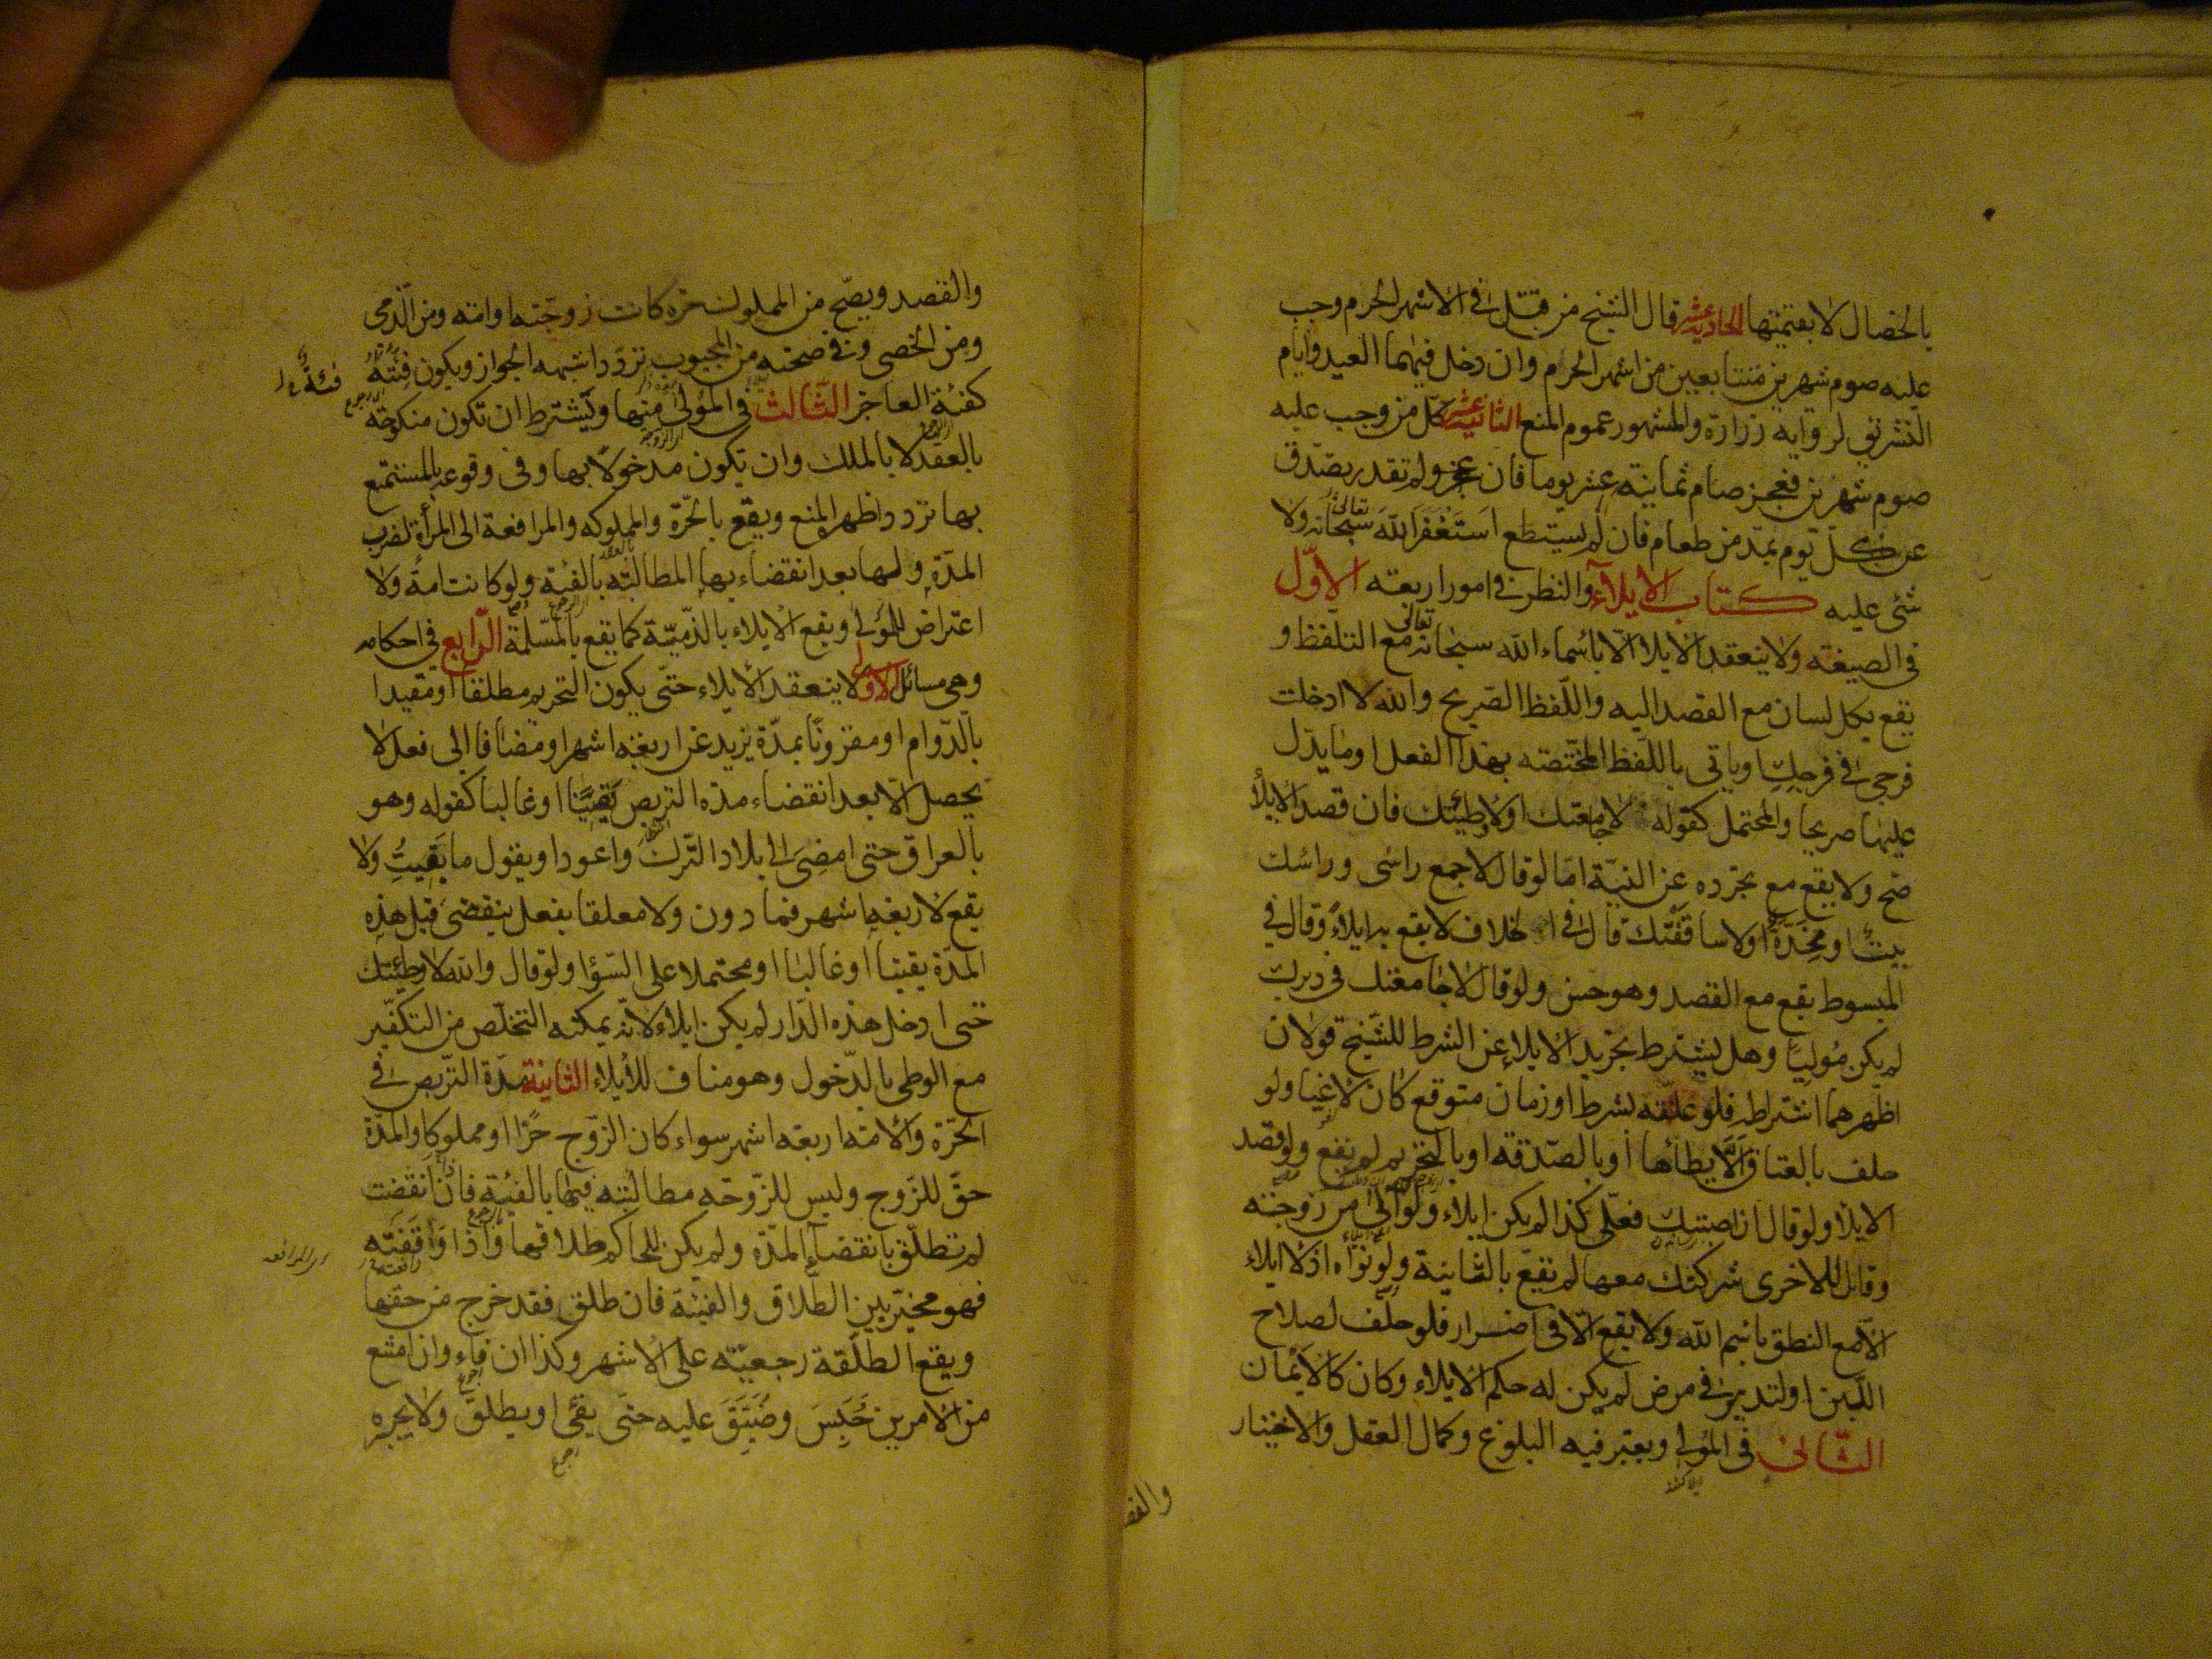 بالخصال لا بقيمتها الحادية عشر قال الشيخ من قتل في الاشهر الحرم وجب
عليه صوم شهرين متتابعين من اشهر الحرم وان دخل فيهما العيد وايام
التشريق لرواية زرارة والمشهور عموم المنع الثانية عشر كل من وجب عليه
صوم شهرين فعجز صام ثمانية عشر يوما فان عجز ولم تقدر تصدق
عن كل يوم بمد من طعام فان لم يستطع استغفر الله سبحانه تعالى ولا
شئ عليه كتاب الايلاء والنظر في امور اربعة الاول
في الصيغة ولا ينعقد الايلا الا باسماء الله سبحانه تعالى مع التلفظ و
يقع بكل لسان مع القصد اليه واللفظ الصريح والله لا ادخلت
فرجى في فرجك او ياتى باللفظ المختصه بهذا الفعل او ما يدل
عليها صريحا والمحتمل كقوله لا جامعتك او لا وطيتك فان قصد الايلأ
صح ولا يقع مع تجرده عن النية اما لو قال لا جمع راسى وراسك
بيت او مخدة او لا ساقفتك قال في الخلاف لا يقع به ايلاء وقال في
المبسوط يقع مع القصد وهو حسن ولو قال لا جامعتك في دبرك
لم يكن موليا وهل يشترط تجريد الايلاء عن الشرط للشيخ قولان
اظهرهما اشتراطه فلو علقه بشرط او زمان متوقع كان لاغيا ولو
حلف بالعتاق الا يطأها او بالصدقة او بالتحريم لم يقع ولو قصد
الايلا ولو قال ان اصبتك فعلى كذا لم يكن ايلاء ولو آلى من زوجته
وقال للاخرى شركتك معها لم تقع بالثانية ولو نواه اذ لا ايلاء
الا مع النطق باسم الله ولا يقع الا في اضرار فلو حلف لصلاح
اللبن او لتدبير في مرض لم يكن له حكم الايلاء وكان كالايمان
الثانى في المولى ويعتبر فيه البلوغ وكمال العقل والاختيار
والقصد
والقصد ويصح من المملوك حره كانت زوجته او امة ومن الذمى
ومن الخصى وفى صحته من المجبوب تردد اشبهه الجواز ويكون فئته
كفئة العاجز الثالث في المولى منها ويشترط ان تكون منكوحة
بالعقد لا بالملك وان تكون مدخولا بها وفى وقوعه بالمستمتع
بها تردد اظهر المنع ويقع بالحرة والمملوكه والمرافعة الى المرأة لضرب
المدة ولها بعد انقضاء بها المطالبة بالفئة ولو كانت امة ولا
اعتراض للمولى ويقع الايلاء بالذمية كما يقع بالمسلمة الرابع في احكامه
وهى مسائل الاولى لا ينعقد الايلاء حتى يكون التحريم مطلقا او مقيدا
بالدوام او مقرونا بمدة يزيد عن اربعة اشهر او مضافا الى فعل لا
يحصل الا بعد انقضاء مدة التربص يقينا او غالبا كقوله وهو
بالعراق حتى امضى الى بلاد الترك واعود او يقول ما بقيت ولا
يقع لاربعة اشهر فما دون ولا معلقا بفعل ينقضى قبل هذه
المدة يقينا او غالبا او محتملا على السؤا ولو قال والله لا وطئتك
حتى ادخل هذه الدار لم يكن ايلاء لانه يمكنه التخلص من التكفير
مع الوطى بالدخول وهو مناف للايلاء الثانية مدة التربص في
الحرة والامة اربعة اشهر سواء كان الزوج حرا او مملوكا والمدة
حق للزوج وليس للزوجة مطالبته فيها بالفئية فاذا انقضت
لم تطلق بانقضاء المدة ولم يكن للحاكم طلاقها واذا واقفته
فهو مخير بين الطلاق والفيئة فان طلق فقد خرج من حقها
ويقع الطلقة رجعية على الاشهر وكذا ان فاء وان امتنع
من الامرين حبس وضيق عليه حتى يفئ او يطلق ولا يجبره